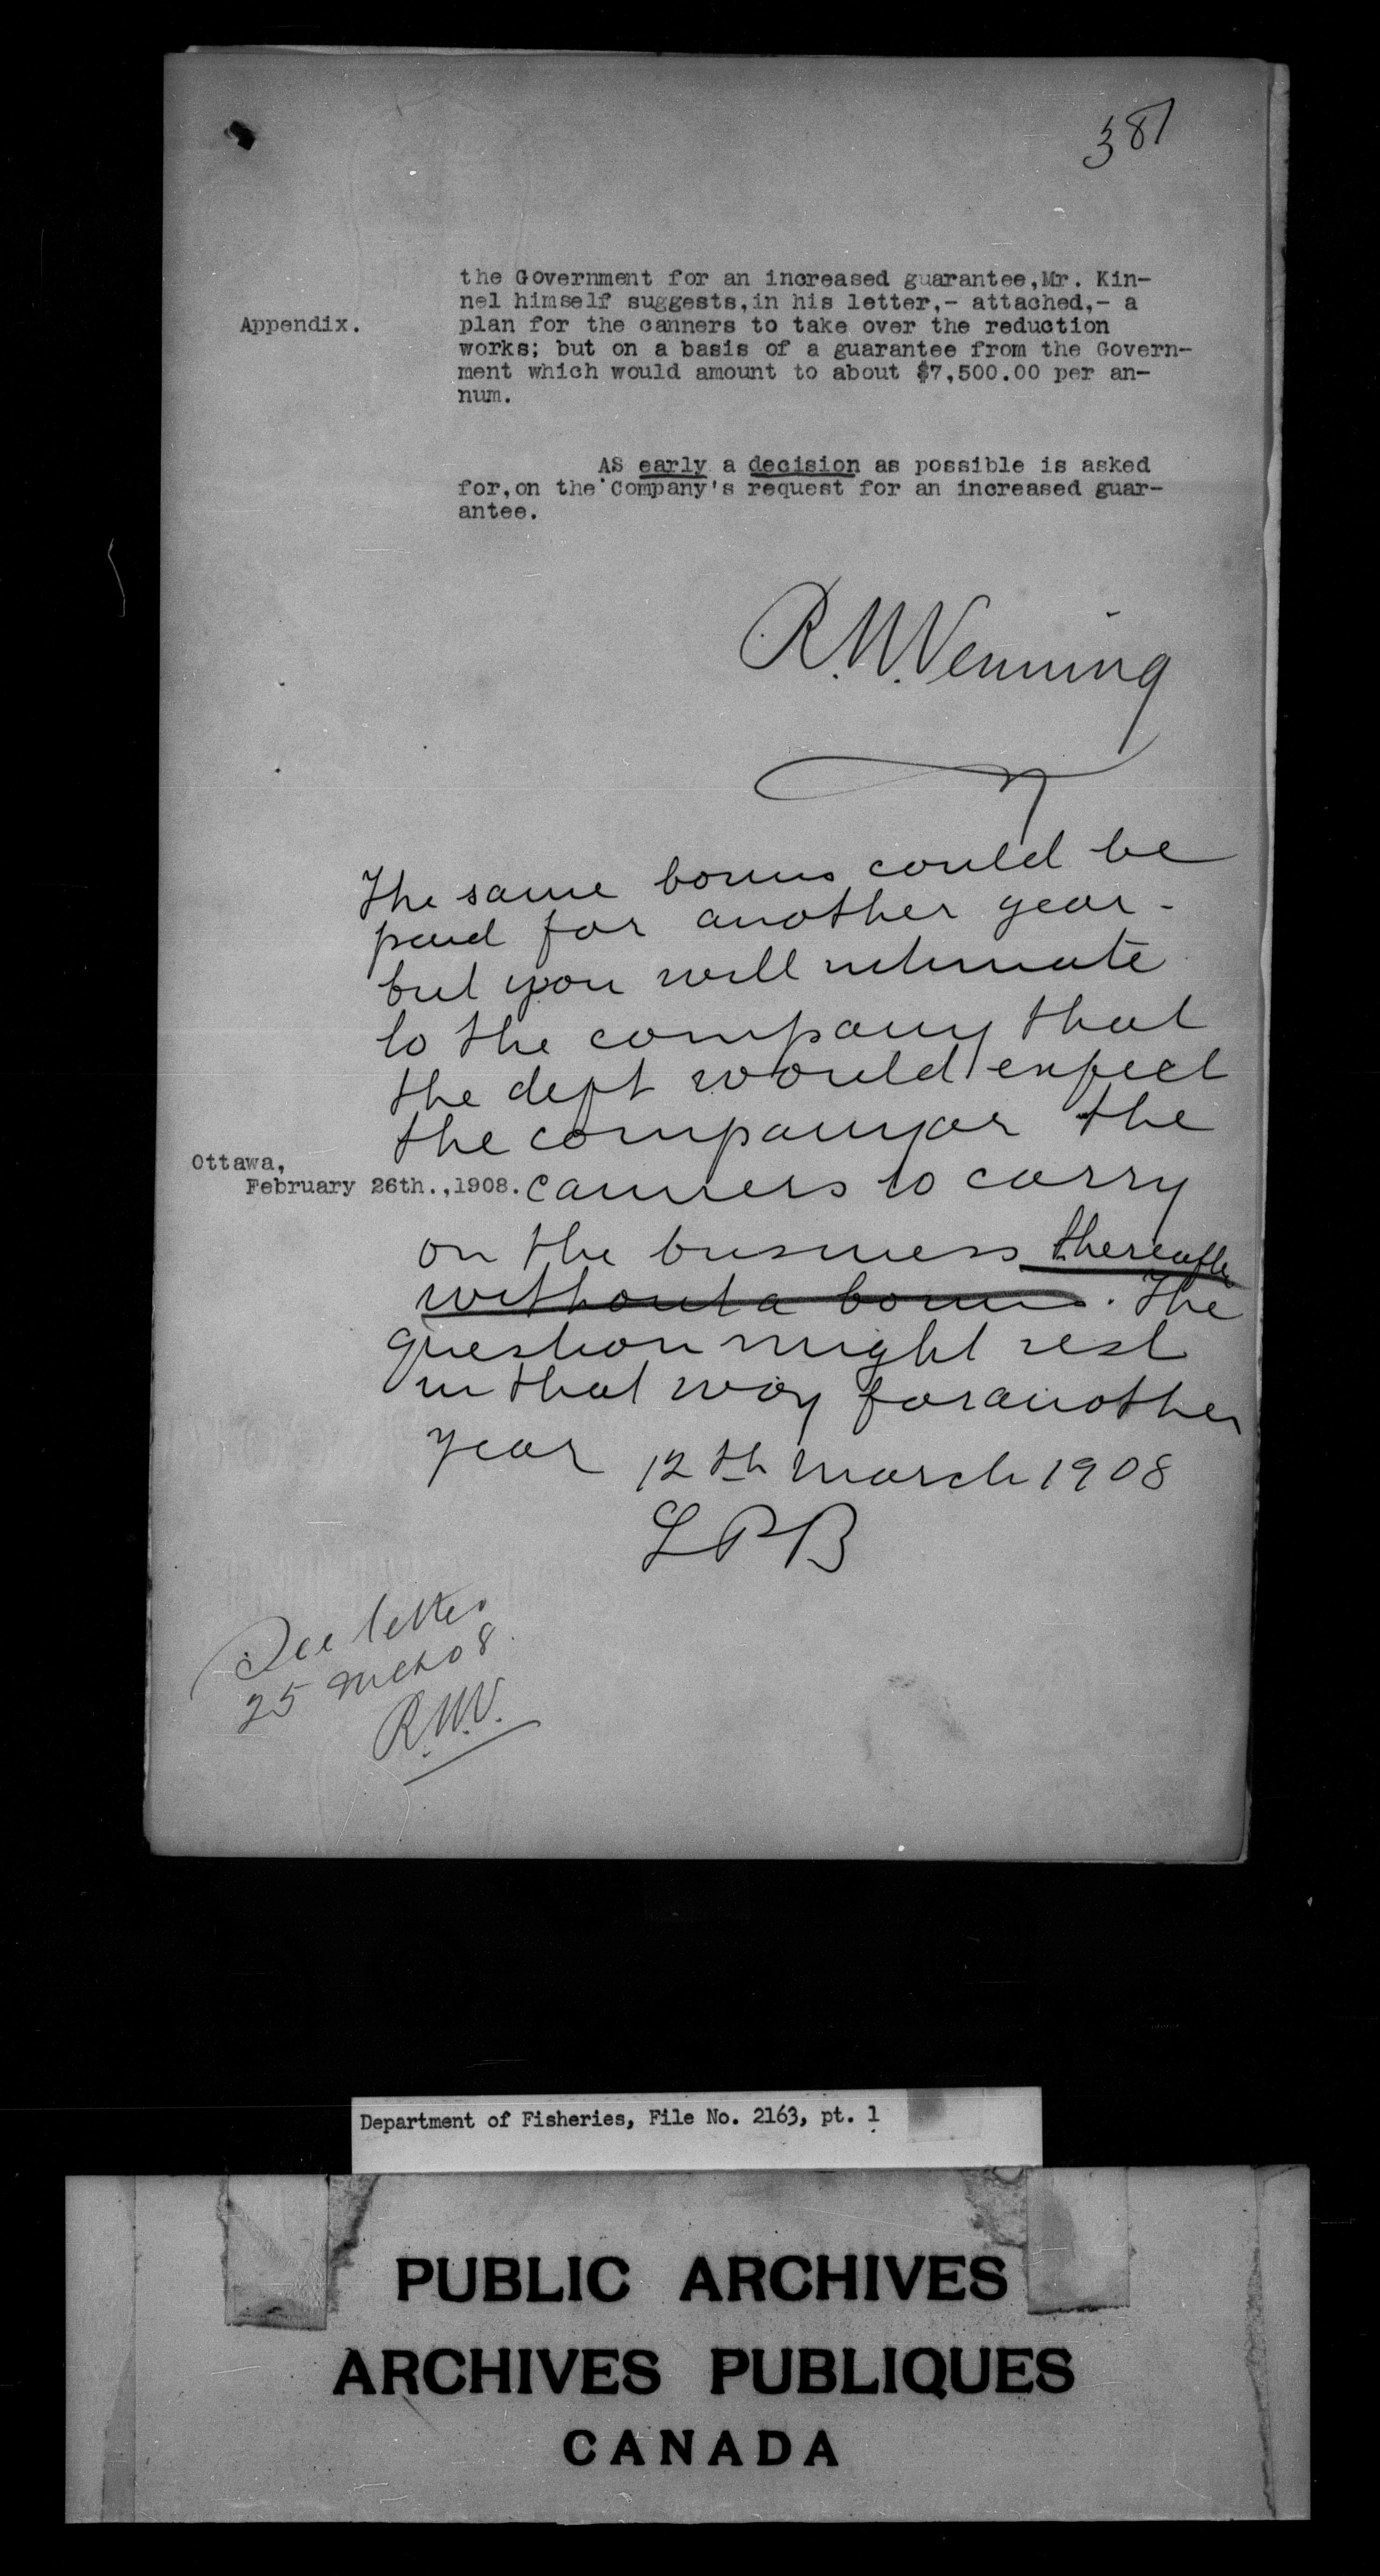 381
the Government for an increased guarantee,Mr. Kin-
nel himself suggests,in his letter,- attached,- a
Appendix. plan for the canners to take over the reduction
works; but on a basis of a guarantee from the Govern-
ment which would amount to about $7,500.00 per an-
num.
AS early a decision as possible is asked
for,on the Company's request for an increased guar-
antee.
R.N.Venning
The same bonus could be
paid for another year -
but you will intimate
to the company that
the dept would expect
the company or the
Ottawa,
February 26th.,1908. canners to carry
on the business thereafter
without a bonus. The
question might rest
in that way for another
year 12th March 1908
LPB
See letter
25 Mch 08.
R.N.V.
Department of Fisheries, File No. 2163, pt. 1
PUBLIC ARCHIVES
ARCHIVES PUBLIQUES
CANADA